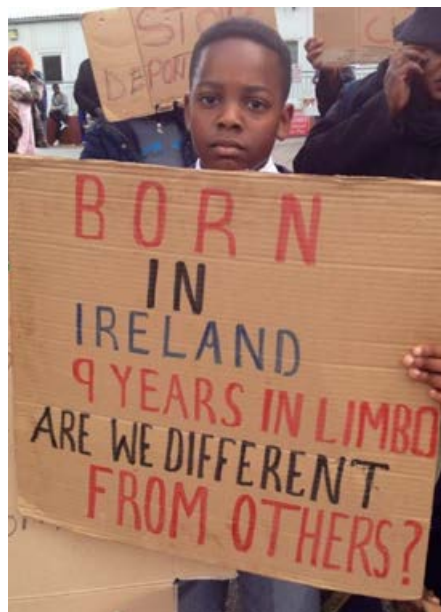 STOP
DEPOR
BORN
IN
IRELAND
9 YEARS IN LIMBO
ARE WE DIFFERENT
FROM OTHERS?